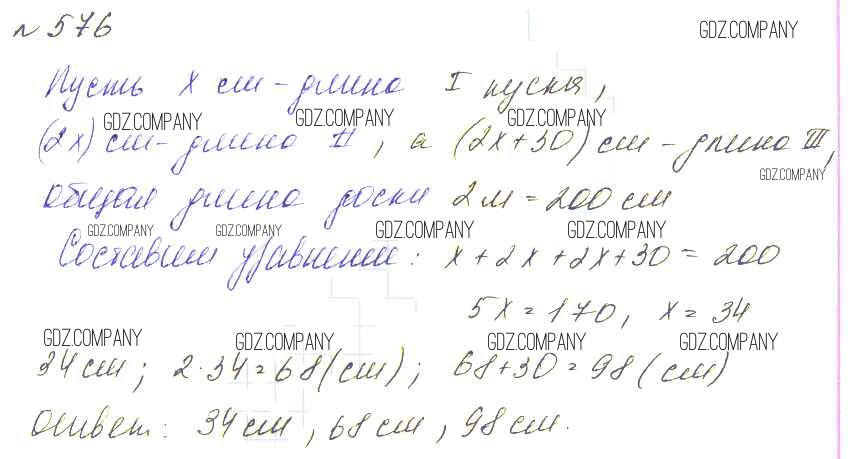 № 576 GDZ.COMPANY
Пусть x см - длина I куска,
GDZ.COMPANY GDZ.COMPANY GDZ.COMPANY
(2x) см - длина II, а (2x+30) см - длина III,
GDZ.COMPANY
общая длина доски 2 м = 200 см
GDZ.COMPANY GDZ.COMPANY GDZ.COMPANY GDZ.COMPANY
Составим уравнение: x + 2x + 2x + 30 = 200
5x = 170, x = 34
GDZ.COMPANY GDZ.COMPANY GDZ.COMPANY GDZ.COMPANY
34 см; 2·34=68 (см); 68+30=98 (см)
Ответ: 34 см, 68 см, 98 см.